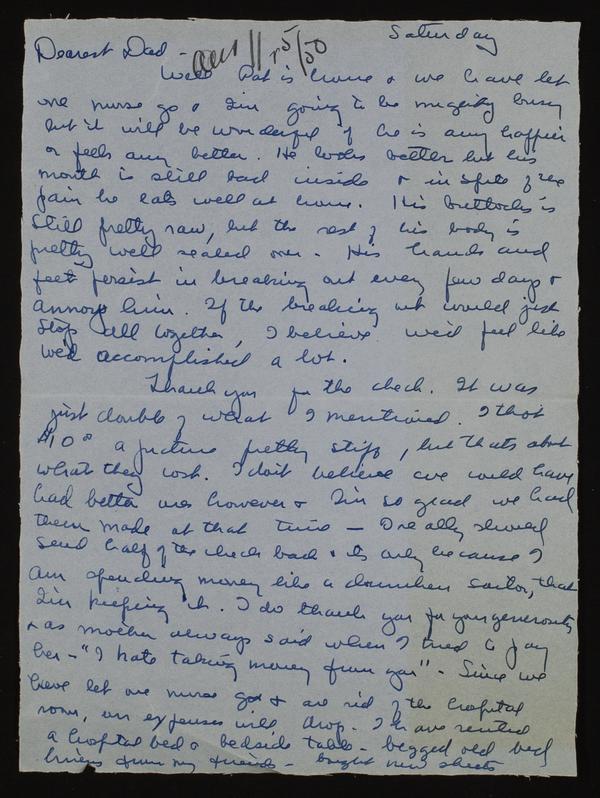 Saturday
Dearest Dad - ans 11/25/50
Well Pat is home & we have let
one nurse go & I'm going to be mighty busy
but it will be wonderful if he is any happier
or feels any better. He looks better but his
mouth is still bad inside & in spite of the
pain he eats well at home. His buttocks is
still pretty raw, but the rest of his body is
pretty well sealed over. His hands and
feet persist in breaking out every few days &
annoys him. If the breaking out would just
stop all together, I believe we'd feel like
we'd accomplished a lot.
Thank you for the check. It was
just double of what I mentioned. I thot
$10⁰⁰ a picture pretty stiff, but thats about
what they cost. I don't believe we could have
had better ones however & I'm so glad we had
them made at that time - I really should
send half of the check back & its only because I
am spending money like a drunken sailor, that
I'm keeping it. I do thank you for your generosity
& as mother always said when I tried to pay
her - "I hate taking money from you" - Since we
have let one nurse go & are rid of the hospital
room, our expenses will drop. I have rented
a hospital bed & bedside table - begged old bed
linens from my friends - bought new sheets